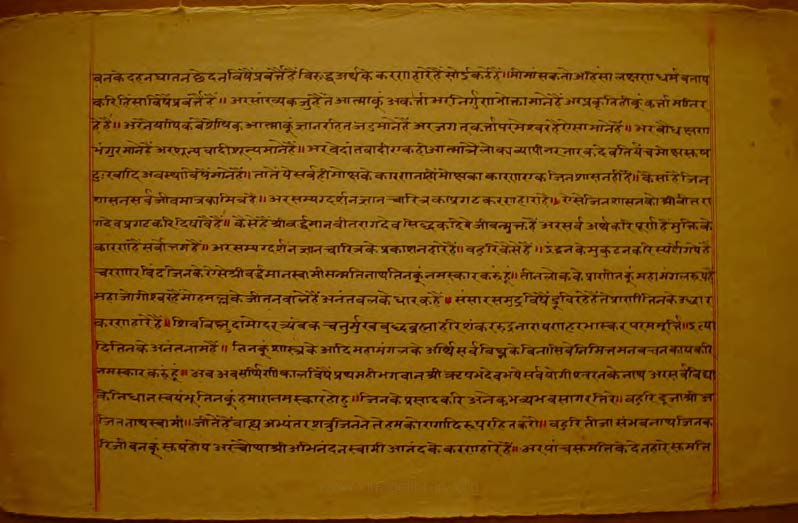 वनके दहन घातन छेदनविषैं प्रवर्त्तैहैं विरुद्ध अर्थके करणहारेहैं सोई कहेहैं॥ मीमांसक तो अहिंसा लक्षण धर्म बताय
करि हिंसाविषैं प्रवर्त्तैहैं॥ अर सांख्यक जुहैं ते आत्माकूं अकर्त्ता अर निर्गुण भोक्ता मानेहैं अर प्रकृतिहीकूं कर्त्ता मानि
हेहैं॥ अर नैयायिक वैशेषिक आत्माकूं ज्ञानरहित जड मानेहैं अर जगतकर्त्ता परमेश्वरहै ऐसा मानेहैं॥ अर बौध क्षण
भंगुर मानेहैं अर शून्यवादी शून्य मानेहैं॥ अर वेदांतवादी एकही आत्मा त्रैलोक्यव्यापी नर नारक देव तिर्यंच मोक्ष सुख
दुःखादि अवस्थाविषैं मानेहैं॥ तातें ये सर्वही मोक्षके कारण नाही मोक्षका कारण एक जिनशासनहीहै॥ कैसाहै जिन
शासन सर्व जीवमात्रका मित्रहै॥ अर सम्यग्दर्शन ज्ञान चारित्रका प्रगट करणहाराहै॥ ऐसे जिनशासनको श्री वीतरा
गदेव प्रगट करि दियावैहै॥ कैसेहैं श्री वर्द्धमान वीतरागदेव सिद्ध कहिये जीवन्मुक्तहैं अर सर्व अर्थ करि पूर्णहैं मुक्तिके
कारणहैं सर्वोत्तमहैं॥ अर सम्यग्दर्शन ज्ञान चारित्रके प्रकाशनहारेहैं॥ बहुरि कैसेहैं॥ इंद्रनके मुकुटनकरि स्पर्शे गयेहैं
चरणारविंद जिनके ऐसे श्री वर्द्धमानस्वामी सन्मतिनाथ तिनकूं नमस्कार करूंहूं॥ तीन लोकके प्राणीनकूं महामंगलरूपहैं
महाजोगीश्वरहैं मोहमल्लके जीतनवालेहैं अनंत बलके धारकहैं॥ संसार समुद्रविषैं डूबि रहेहैं ते प्राणी तिनके उधार
करणहारेहैं॥ शिव विष्णु दामोदर त्र्यंबक चतुर्मुख बुद्ध ब्रह्मा हरि शंकर रुद्र नारायण हर भास्कर परममूर्त्ति॥ इत्या
दि तिनके अनंत नामहैं॥ तिनकूं शास्त्रके आदि महामंगलके अर्थि सर्व विघ्नके विनासिवे निमित्त मन वचन काय करि
नमस्कार करूंहूं॥ अब अवसर्पिणी कालविषैं प्रथमही भगवान श्री ऋषभदेव भये सर्व योगीश्वरनके नाथ अर सर्व विद्या
के निधान स्वयंभू तिनकूं हमारा नमस्कार होहु॥ जिनके प्रसाद करि अनेक भव्य भवसागर तिरे॥ बहुरि दूजा श्री अ
जितनाथस्वामी॥ जीतेहैं बाह्य अभ्यंतर शत्रु जिनने ते हमको रागादि रूप रहित करो॥ बहुरि तीजा संभवनाथ जिनक
रि जीवनकूं सुख होय अर चौथा श्री अभिनंदनस्वामी आनंदके करणहारेहैं॥ अर पांच सुमतिके देनहारे सुमति